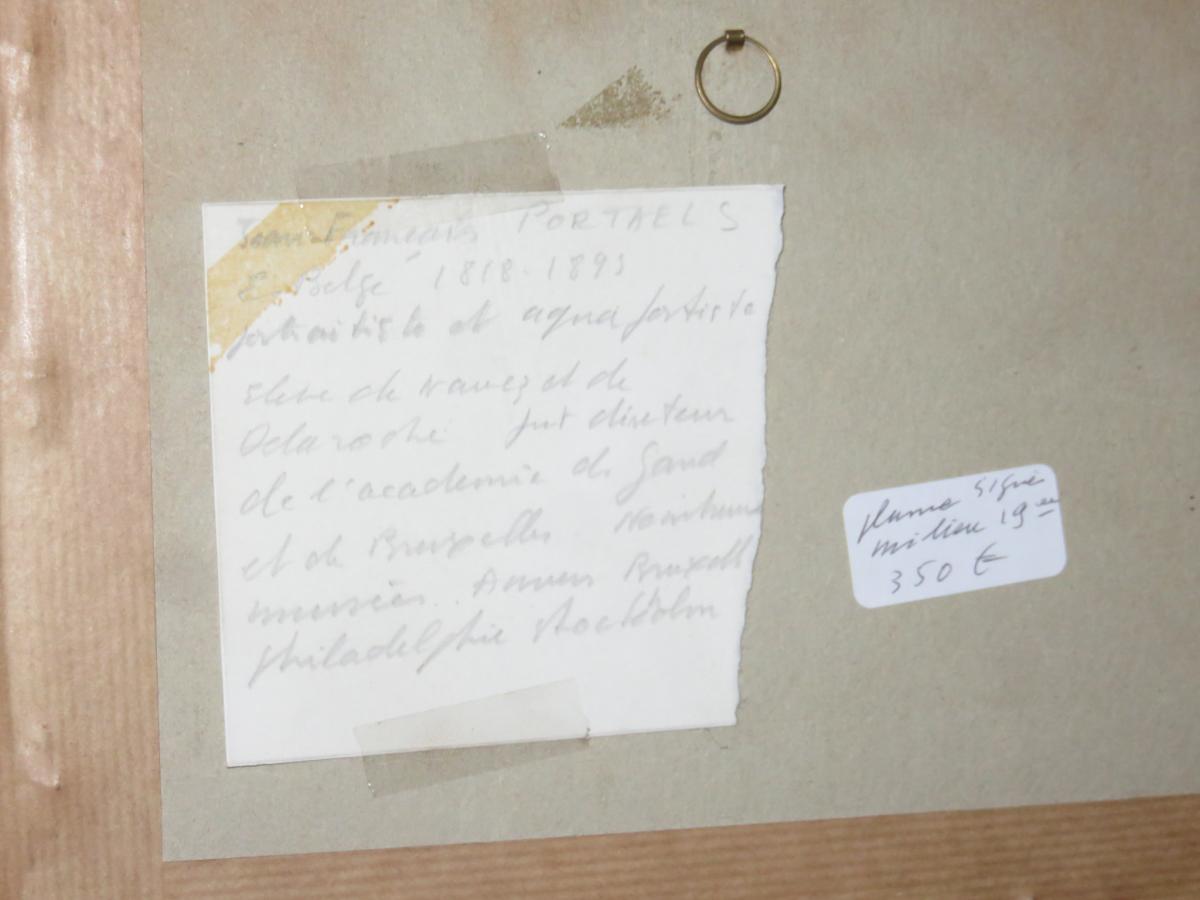 Jean-François PORTAELS
E. Belge 1818-1895
portraitiste et aqua fortiste
Eleve de Navez et de
Delaroche fut directeur
de l'academie de Gand
et de Bruxelles Nombreux
musées. Anvers Bruxell
philadelphie stockholm
plume signé
milieu 19
350 €